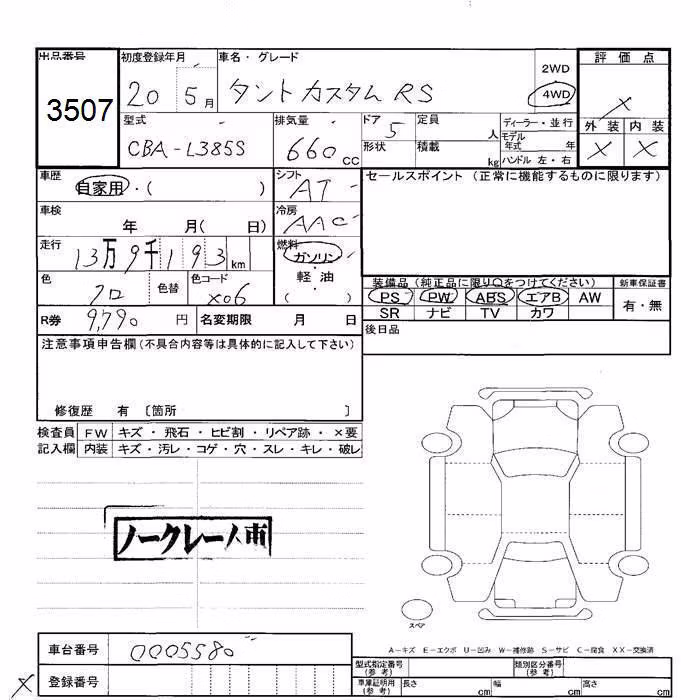 出品番号
3507
初度登録年月
20 5月
車名・グレード
タントカスタム RS
2WD
4WD
評価点
X
外装 内装
X X
型式
CBA-L385S
排気量
660 cc
ドア
5
形状
定員
人
積載
kg
ディーラー・並行
モデル年式 年
ハンドル 左・右
車歴
自家用・( )
シフト
AT
車検
年 月( 日)
冷房
AAC
走行
13万9千193 km
燃料
ガソリン
・
軽・油
( )
色
クロ
色替
色コード
X06
R券 9,790 円
名変期限 月 日
セールスポイント (正常に機能するものに限ります)
装備品 (純正品に限り○をつけてください)
新車保証書
PS PW ABS エアB AW
有・無
SR ナビ TV カワ
後日品
注意事項申告欄 (不具合内容等は具体的に記入して下さい)
修復歴 有 〔箇所 〕
検査員 FW キズ・飛石・ヒビ割・リペア跡・×要
記入欄 内装 キズ・汚レ・コゲ・穴・スレ・キレ・破レ
ノークレーム車両
スペア
A-キズ E-エクボ U-凹み W-補修跡 S-サビ C-腐食 XX-交換済
車台番号 0005580
登録番号
X
型式指定番号 (参考)
類別区分番号 (参考)
車庫証明用 (参考) 長さ cm 幅 cm 高さ cm